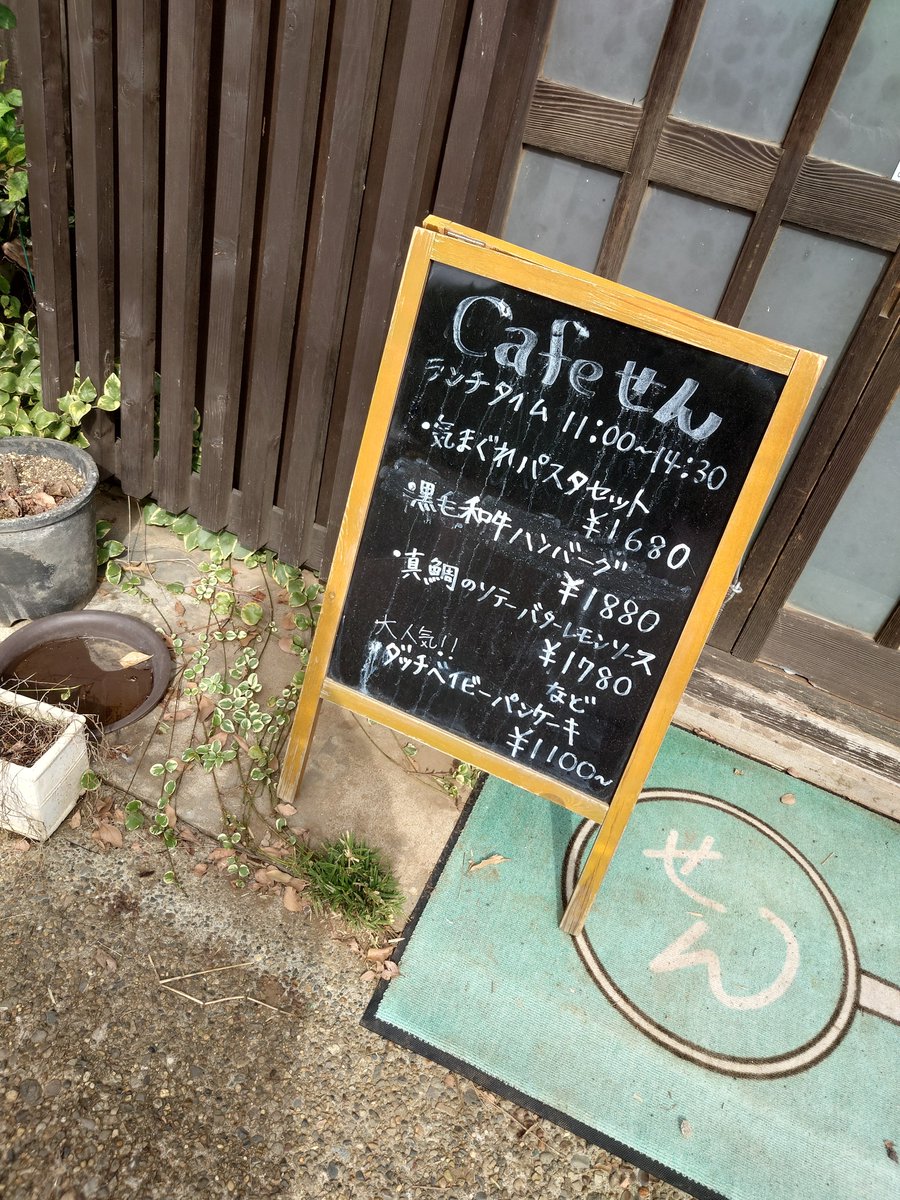 Cafe せん
ランチタイム 11:00~14:30
・気まぐれパスタセット
¥1680
・黒毛和牛ハンバーグ
¥1880
・真鯛のソテーバターレモンソース
¥1780
など
大人気!!
・ダッチベイビーパンケーキ
¥1100~
せん